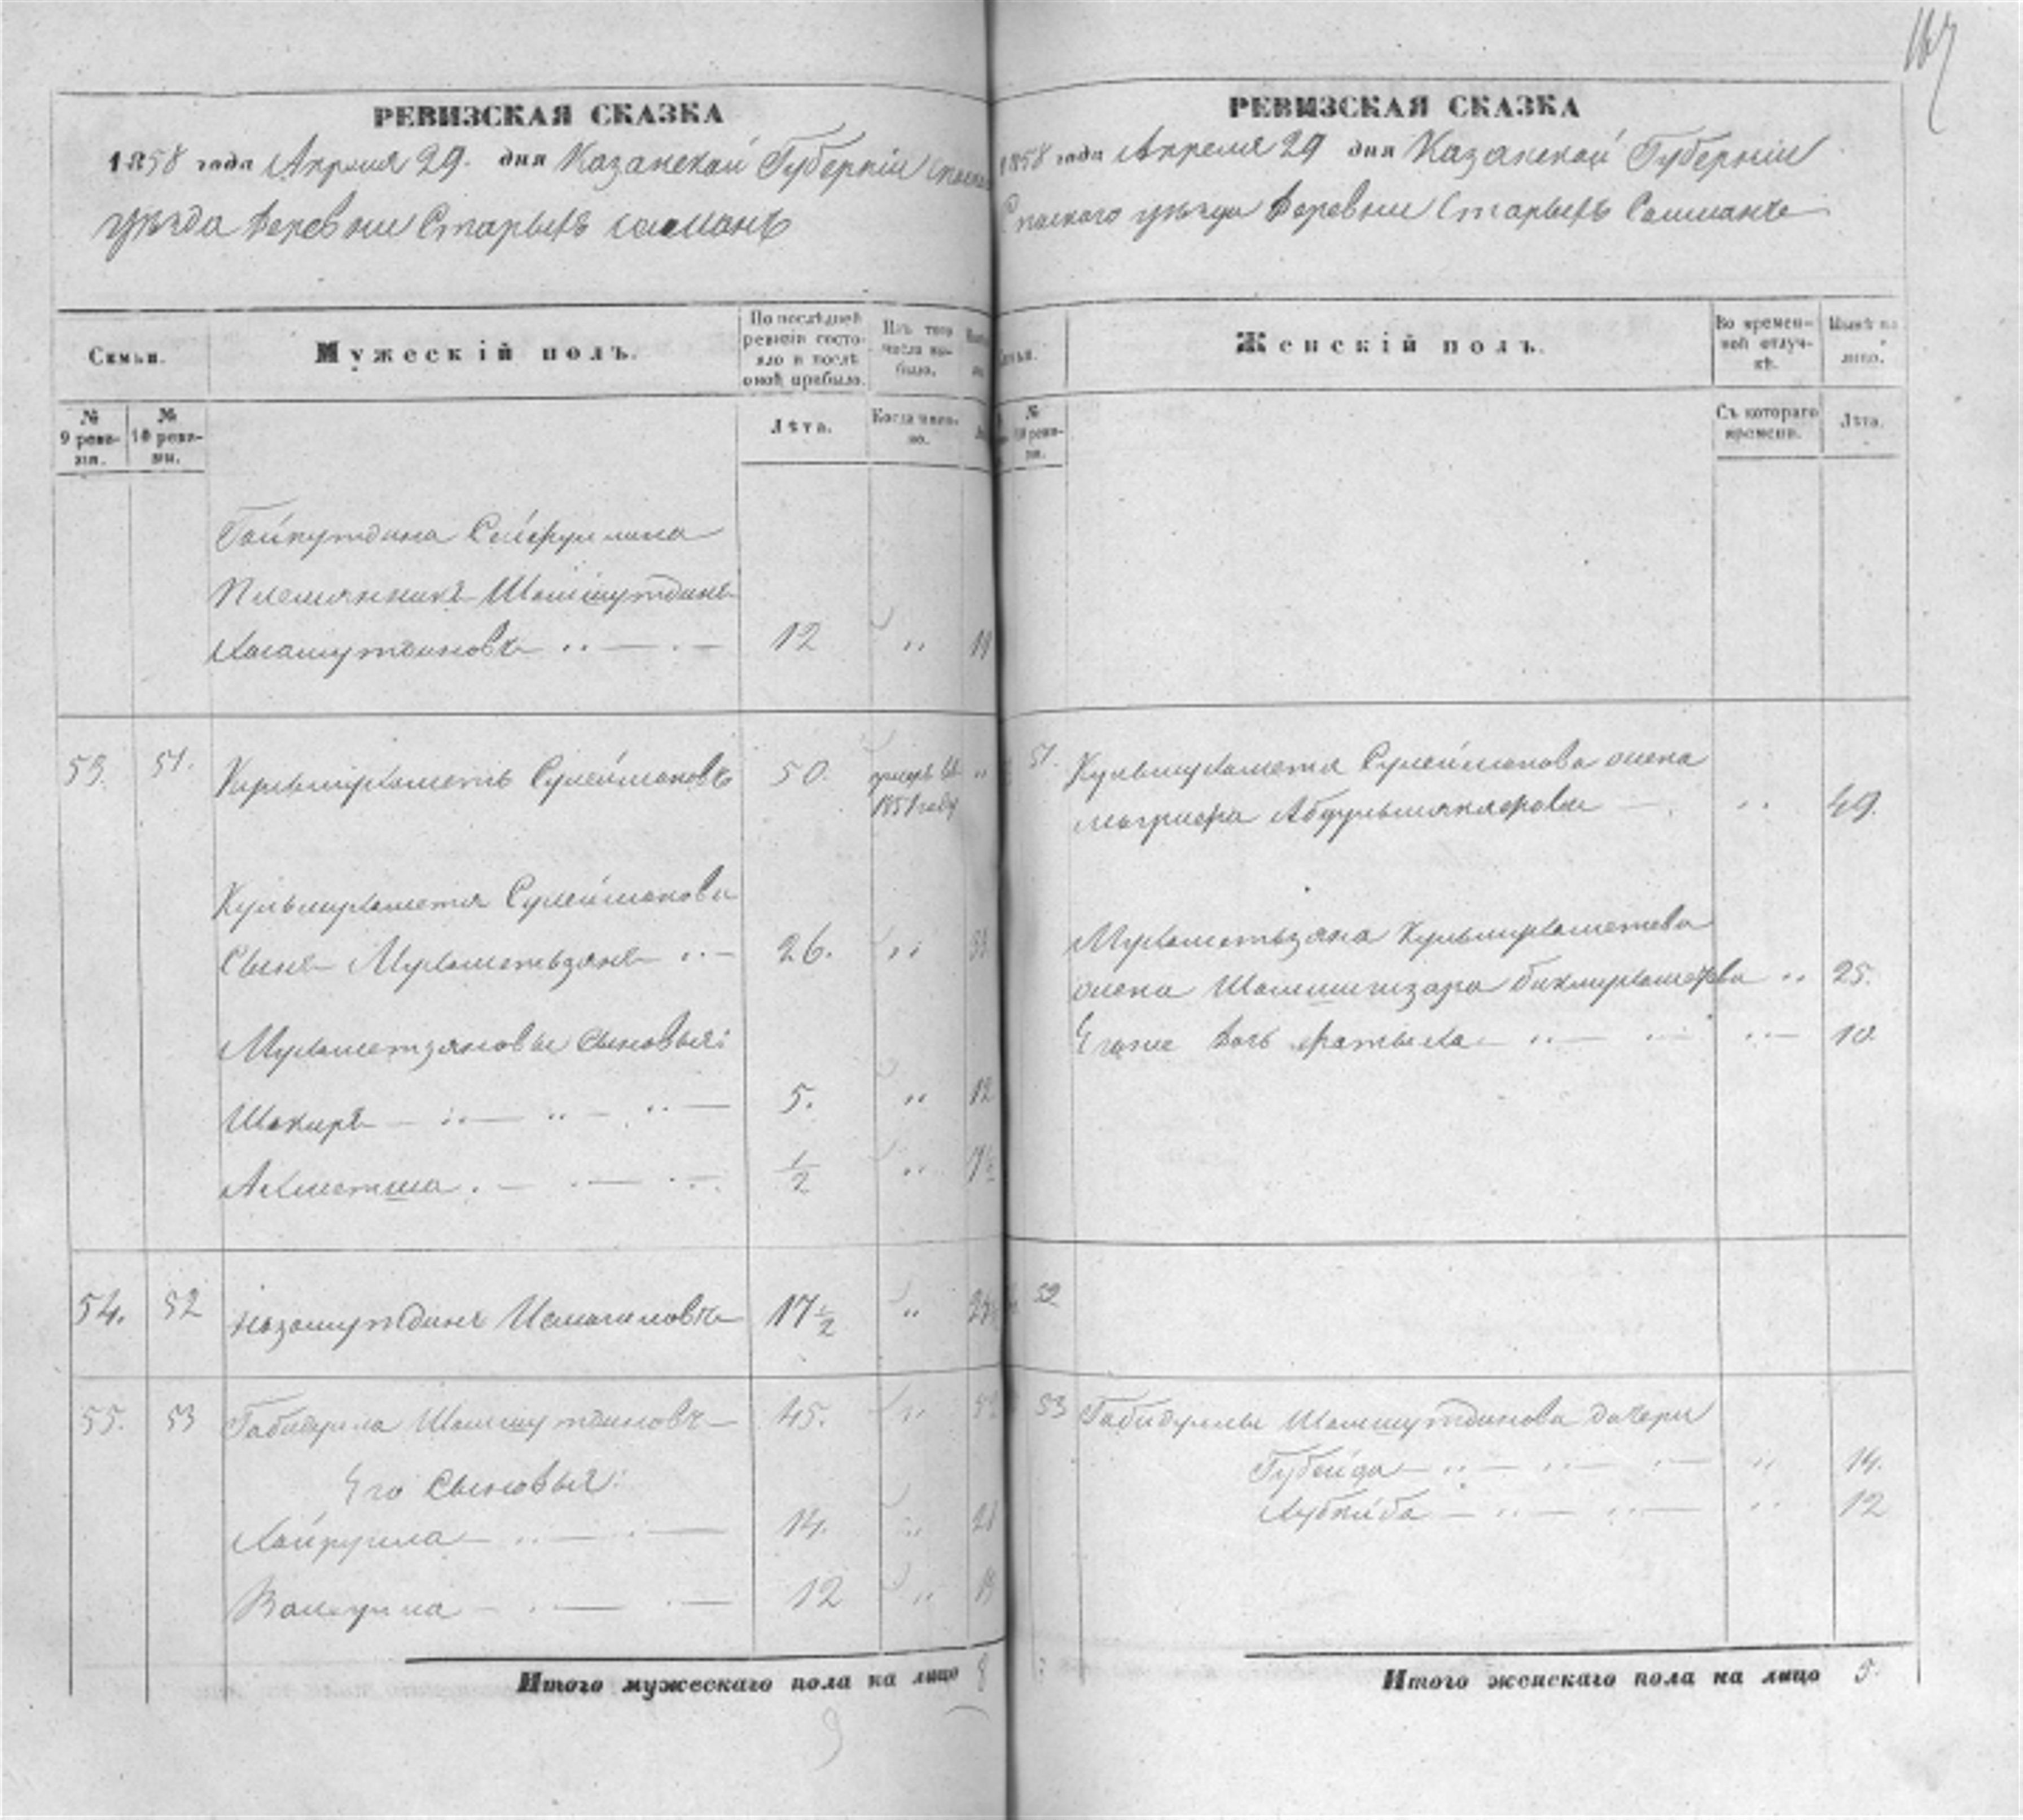 167
РЕВИЗСКАЯ СКАЗКА
1858 года Апреля 29. дня Казанской Губерніи Спаска
уѣзда Деревни Старыхъ Салманъ
Семьи.
Мужескій полъ.
По послѣдней ревизіи состояло и послѣ оной прибыло.
Изъ того числа выбыло.
№ 9 ревизіи.
№ 10 ревизіи.
Лѣта.
Когда именно.
Гайнутдина Сейфуллина
Племянникъ Шамсутдинъ
Хисамутдиновъ 12 " 19
53. 51. Кульмухаметь Сулеймановъ 50. умеръ въ 1851 году "
Кульмухаметя Сулейманова
Сынъ Мухаметьзянъ 26. " 33
Мухаметзяновы сыновья:
Шакиръ 5. " 12
Ахметша ½ " 7½
54. 52 Низамутдинъ Исмагиловъ 17½ " 24½
55. 53 Габидулла Шамсутдиновъ 45. " 52
Его сыновья:
Хайрулла 14. " 21
Валиулла 12 " 19
Итого мужескаго пола на лицо 8
9
РЕВИЗСКАЯ СКАЗКА
1858 года Апреля 29 дня Казанской Губерніи
Спаского уѣзда Деревни Старыхъ Салманъ
Семьи.
Женскій полъ.
Во временной отлучкѣ.
Нынѣ на лицо.
№ 10 ревизіи.
Съ котораго времени.
Лѣта.
51. Кульмухаметя Сулейманова жена
Абдульманнафова " 49.
Мухаметьзяна Кульмухаметева
жена Бикмухаметова " 25.
Егоже дочь Фатыха " 10
52
53 Габидуллы Шамсутдинова дочери
Губейда " 14.
Хубиба " 12
Итого женскаго пола на лицо 5.